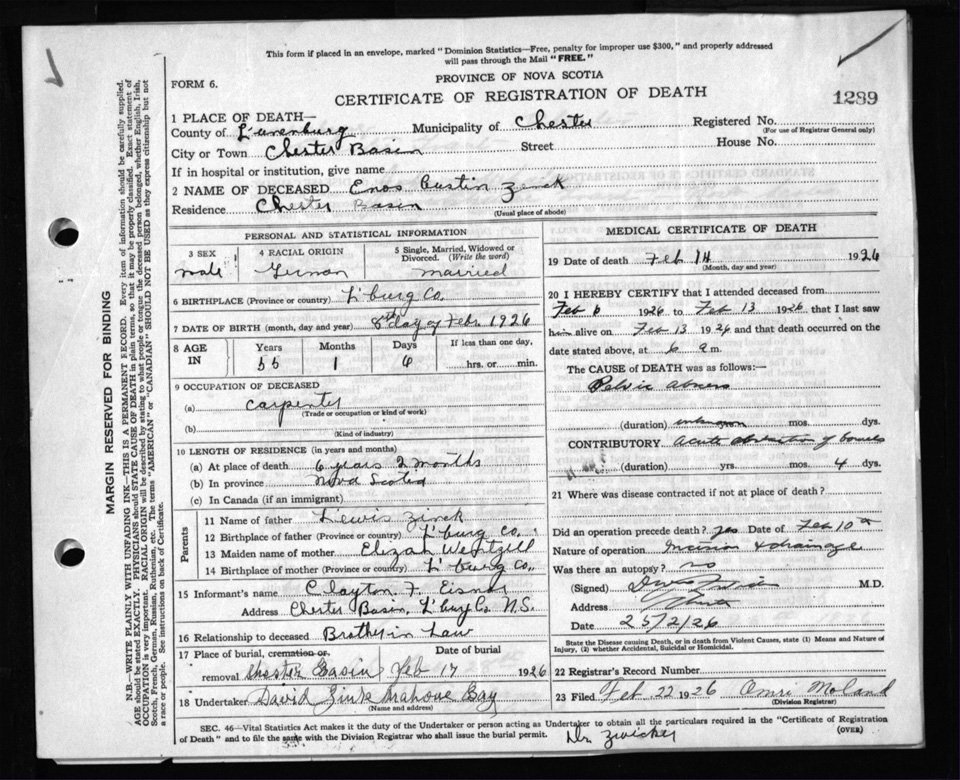 This form if placed in an envelope, marked "Dominion Statistics—Free, penalty for improper use $300," and properly addressed
will pass through the Mail "FREE."
FORM 6.
PROVINCE OF NOVA SCOTIA
CERTIFICATE OF REGISTRATION OF DEATH
1289
1 PLACE OF DEATH—
County of Lunenburg Municipality of Chester Registered No.
(For use of Registrar General only)
City or Town Chester Basin Street House No.
If in hospital or institution, give name
2 NAME OF DECEASED Enos Zinck
Residence Chester Basin
(Usual place of abode)
PERSONAL AND STATISTICAL INFORMATION
3 SEX male
4 RACIAL ORIGIN German
5 Single, Married, Widowed or Divorced. (Write the word) married
6 BIRTHPLACE (Province or country) L'burg Co.
7 DATE OF BIRTH (month, day and year) 8th day of Febr. 1926
8 AGE IN Years 55 Months 1 Days 6 If less than one day, hrs. or min.
9 OCCUPATION OF DECEASED
(a) carpenter
(Trade or occupation or kind of work)
(b)
(Kind of industry)
10 LENGTH OF RESIDENCE (in years and months)
(a) At place of death 6 years 2 months
(b) In province Nova Scotia
(c) In Canada (if an immigrant)
Parents
11 Name of father Lewis Zinck
12 Birthplace of father (Province or country) L'burg Co.
13 Maiden name of mother Elizah Wentzell
14 Birthplace of mother (Province or country) L'burg Co.
15 Informant's name Clayton F. Eisnor
Address Chester Basin, L'burg Co. N.S.
16 Relationship to deceased Brother in Law
17 Place of burial, cremation or removal Date of burial
Chester Basin Feb 17 1926
18 Undertaker David Zink Mahone Bay
(Name and address)
MEDICAL CERTIFICATE OF DEATH
19 Date of death Feb 14 1926
(Month, day and year)
20 I HEREBY CERTIFY that I attended deceased from
Feb 6 1926 to Feb 13 1926, that I last saw
him alive on Feb 13 1926 and that death occurred on the
date stated above, at 6 a m.
The CAUSE of DEATH was as follows:—
Pelvic abscess
(duration) unknown mos. dys.
CONTRIBUTORY Acute obstruction of bowels
(duration) yrs. mos. 4 dys.
21 Where was disease contracted if not at place of death?
Did an operation precede death? yes Date of Feb 10th
Nature of operation Incision & drainage
Was there an autopsy? no
(Signed) M.D.
Address Chester
Date 25/2/26
State the Disease causing Death, or in death from Violent Causes, state (1) Means and Nature of
Injury, (2) whether Accidental, Suicidal or Homicidal.
22 Registrar's Record Number
23 Filed Feb 22 1926 Omri
(Division Registrar)
SEC. 46—Vital Statistics Act makes it the duty of the Undertaker or person acting as Undertaker to obtain all the particulars required in the "Certificate of Registration
of Death" and to file the same with the Division Registrar who shall issue the burial permit.
(OVER)
Dr Zwicker
MARGIN RESERVED FOR BINDING
N.B.—WRITE PLAINLY WITH UNFADING INK—THIS IS A PERMANENT RECORD. Every item of information should be carefully supplied.
AGE should be stated EXACTLY. PHYSICIANS should STATE CAUSE OF DEATH in plain terms, so that it may be properly classified. Exact statement of
OCCUPATION is very important. RACIAL ORIGIN will be described by stating to what people or tongue the deceased person belonged, whether English, Irish,
Scotch, French, German, Russian, Ruthenian, etc. The terms "AMERICAN" or "CANADIAN" SHOULD NOT BE USED as they express citizenship but not
a race or people. See instructions on back of Certificate.